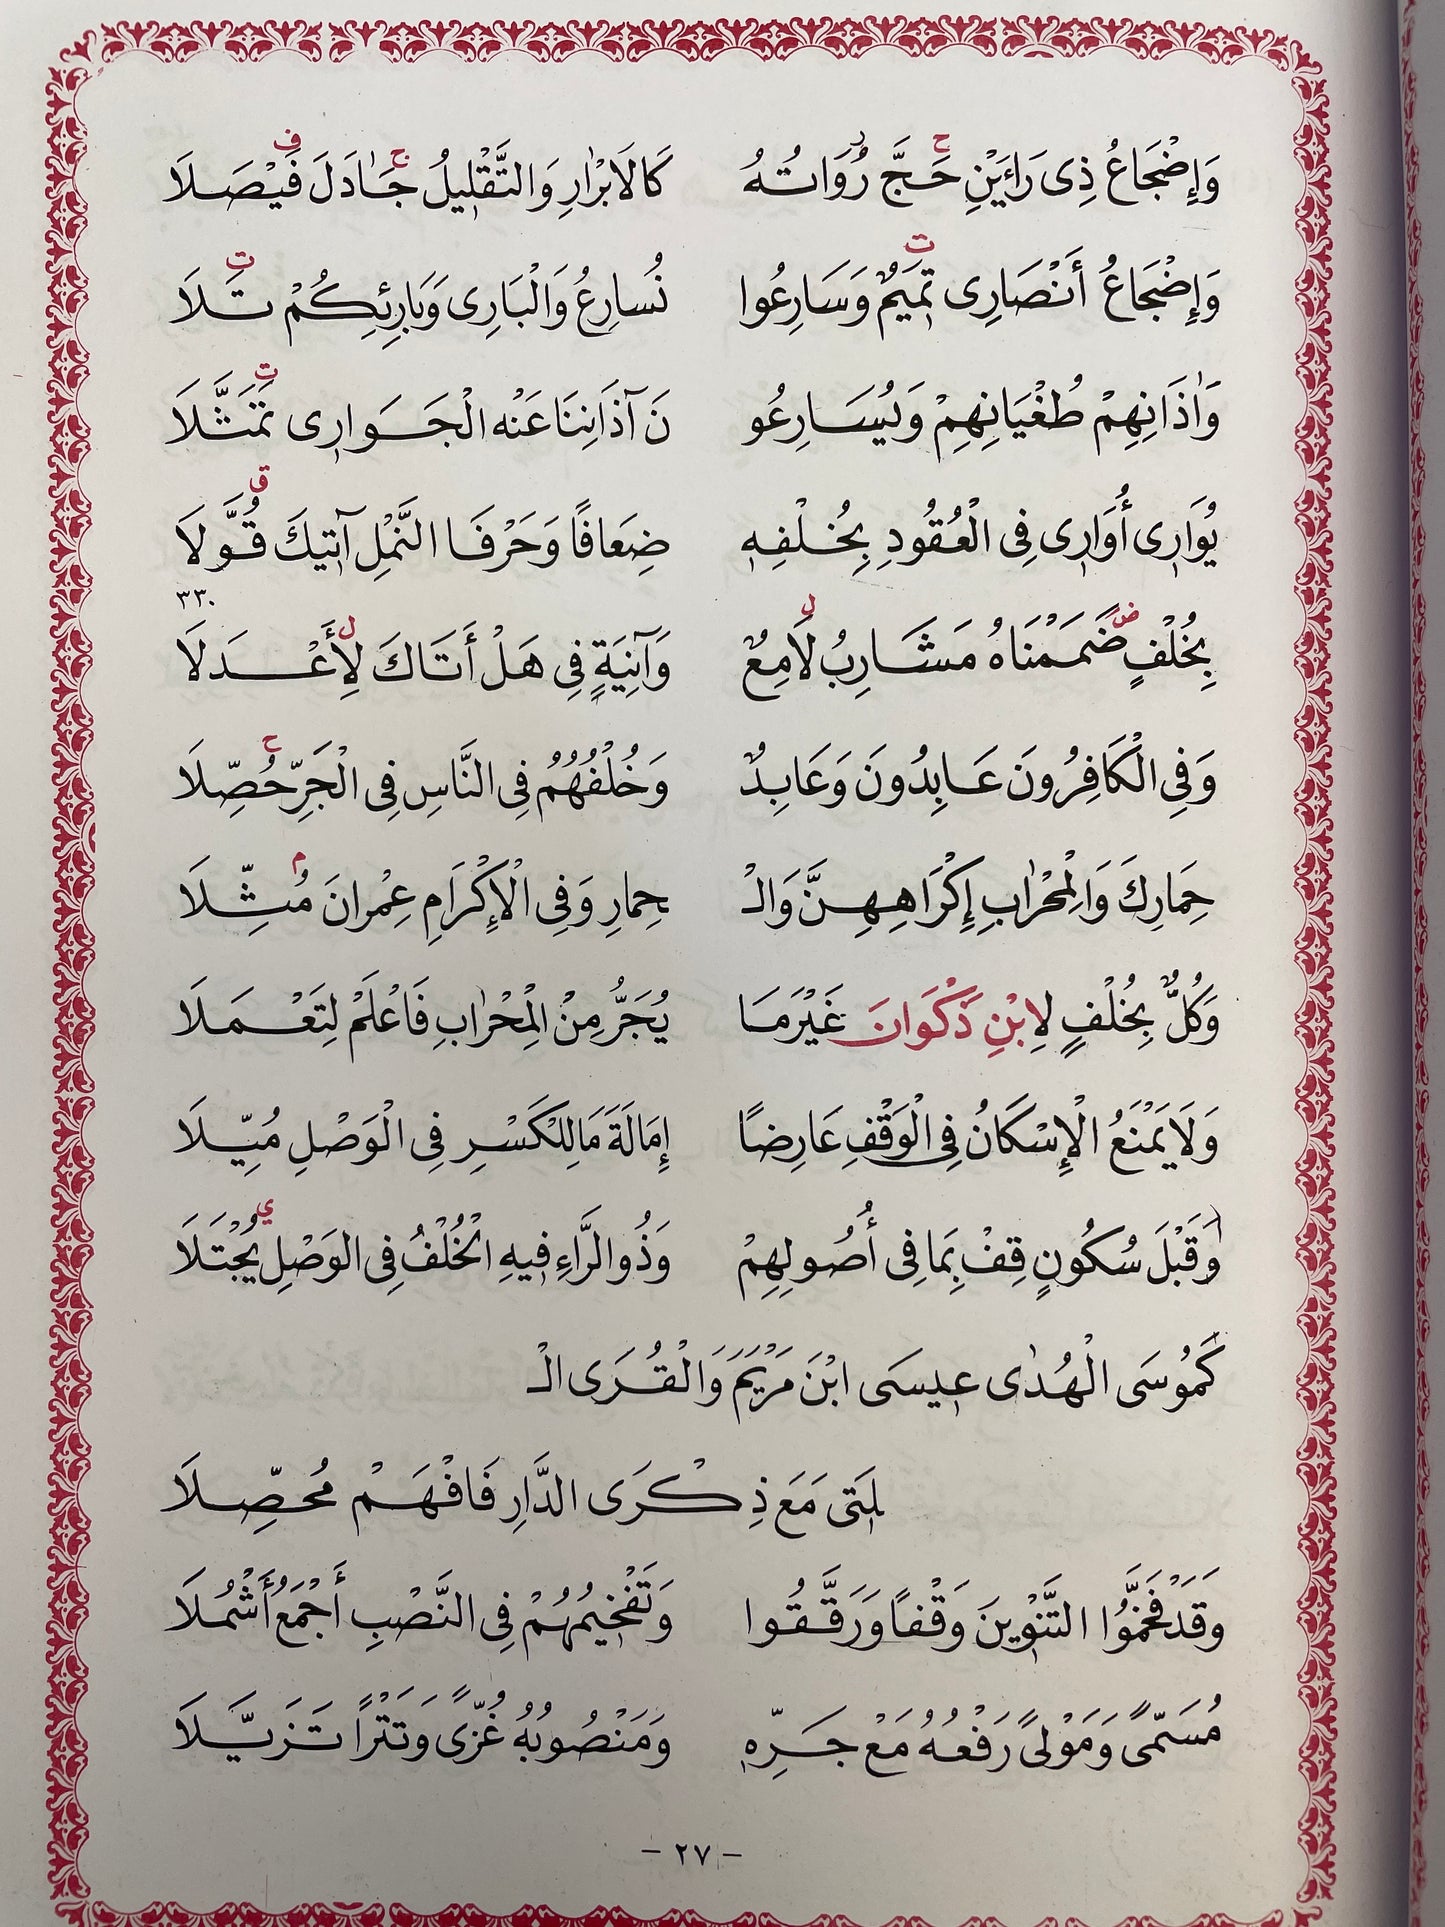 وَإِضْجَاعُ ذِى رَاءَيْنِ حَجَّ رُوَاتُهُ كَالَابْرَارِ وَالتَّقْلِيلُ جَادَلَ فَيْصَلَا
وَإِضْجَاعُ أَنْصَارِى تَمِيمٌ وَسَارِعُوا نُسارِعُ وَالْبَارِى وَبَارِئِكُمْ تَلَا
وَآذَانِهِمْ طُغْيَانِهِمْ وَيُسَارِعُو نَ آذَانِنَا عَنْهُ الْجَوَارِى تَمَثَّلَا
يُوَارِى أُوَارِى فِى الْعُقُودِ بِخُلْفِهِ ضِعَافًا وَحَرْفَا النَّمْلِ آتِيكَ قُوَّلَا
٣٣٠
بِخُلْفٍ ضَمَمْنَاهُ مَشَارِبُ لَامِعٌ وَآنِيَةٍ فِى هَلْ أَتَاكَ لِأَعْدَلَا
وَفِى الْكَافِرُونَ عَابِدُونَ وَعَابِدٌ وَخُلْفُهُمُ فِى النَّاسِ فِى الْجَرِّ حُصِّلَا
حِمَارِكَ وَالْمِحْرَابِ إِكْرَاهِهِنَّ وَالْـ ـحِمارِ وَفِى الْإِكْرَامِ عِمْرانَ مُثِّلَا
وَكُلٌّ بِخُلْفٍ لِابْنِ ذَكْوَانَ غَيْرَ مَا يُجَرُّ مِنَ الْمِحْرَابِ فَاعْلَمْ لِتَعْمَلَا
وَلَا يَمْنَعُ الْإِسْكَانُ فِى الْوَقْفِ عَارِضًا إِمَالَةَ مَا لِلْكَسْرِ فِى الْوَصْلِ مُيِّلَا
وَقَبْلَ سُكُونٍ قِفْ بِمَا فِى أُصُولِهِمْ وَذُو الرَّاءِ فِيهِ الْخُلْفُ فِى الوَصْلِ يُجْتَلَا
كَمُوسَى الْهُدَى عِيسَى ابْنَ مَرْيَمَ وَالْقُرَى الْـ
ـلَتِى مَعَ ذِكْرَى الدَّارِ فَافْهَمْ مُحَصِّلَا
وَقَدْ فَخَّمُوا التَّنْوِينَ وَقْفًا وَرَقَّقُوا وَتَفْخِيمُهُمْ فِى النَّصْبِ أَجْمَعُ أَشْمُلَا
مُسَمًّى وَمَوْلًى رَفْعُهُ مَعْ جَرِّهِ وَمَنْصُوبُهُ غُزًّى وَتَتْرًا تَزَيَّلَا
- ٢٧ -